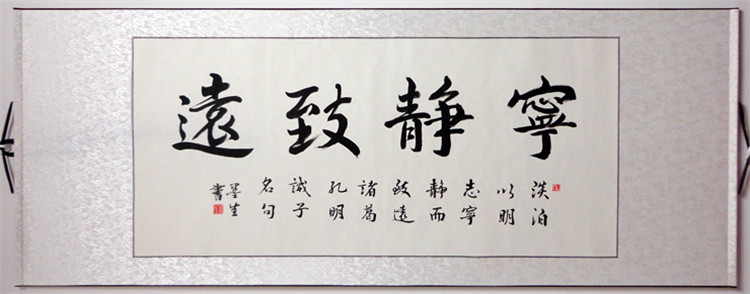 寧静致遠
淡泊
以明
志寧
静而
致遠
諸葛
孔明
誡子
名句
墨生
書